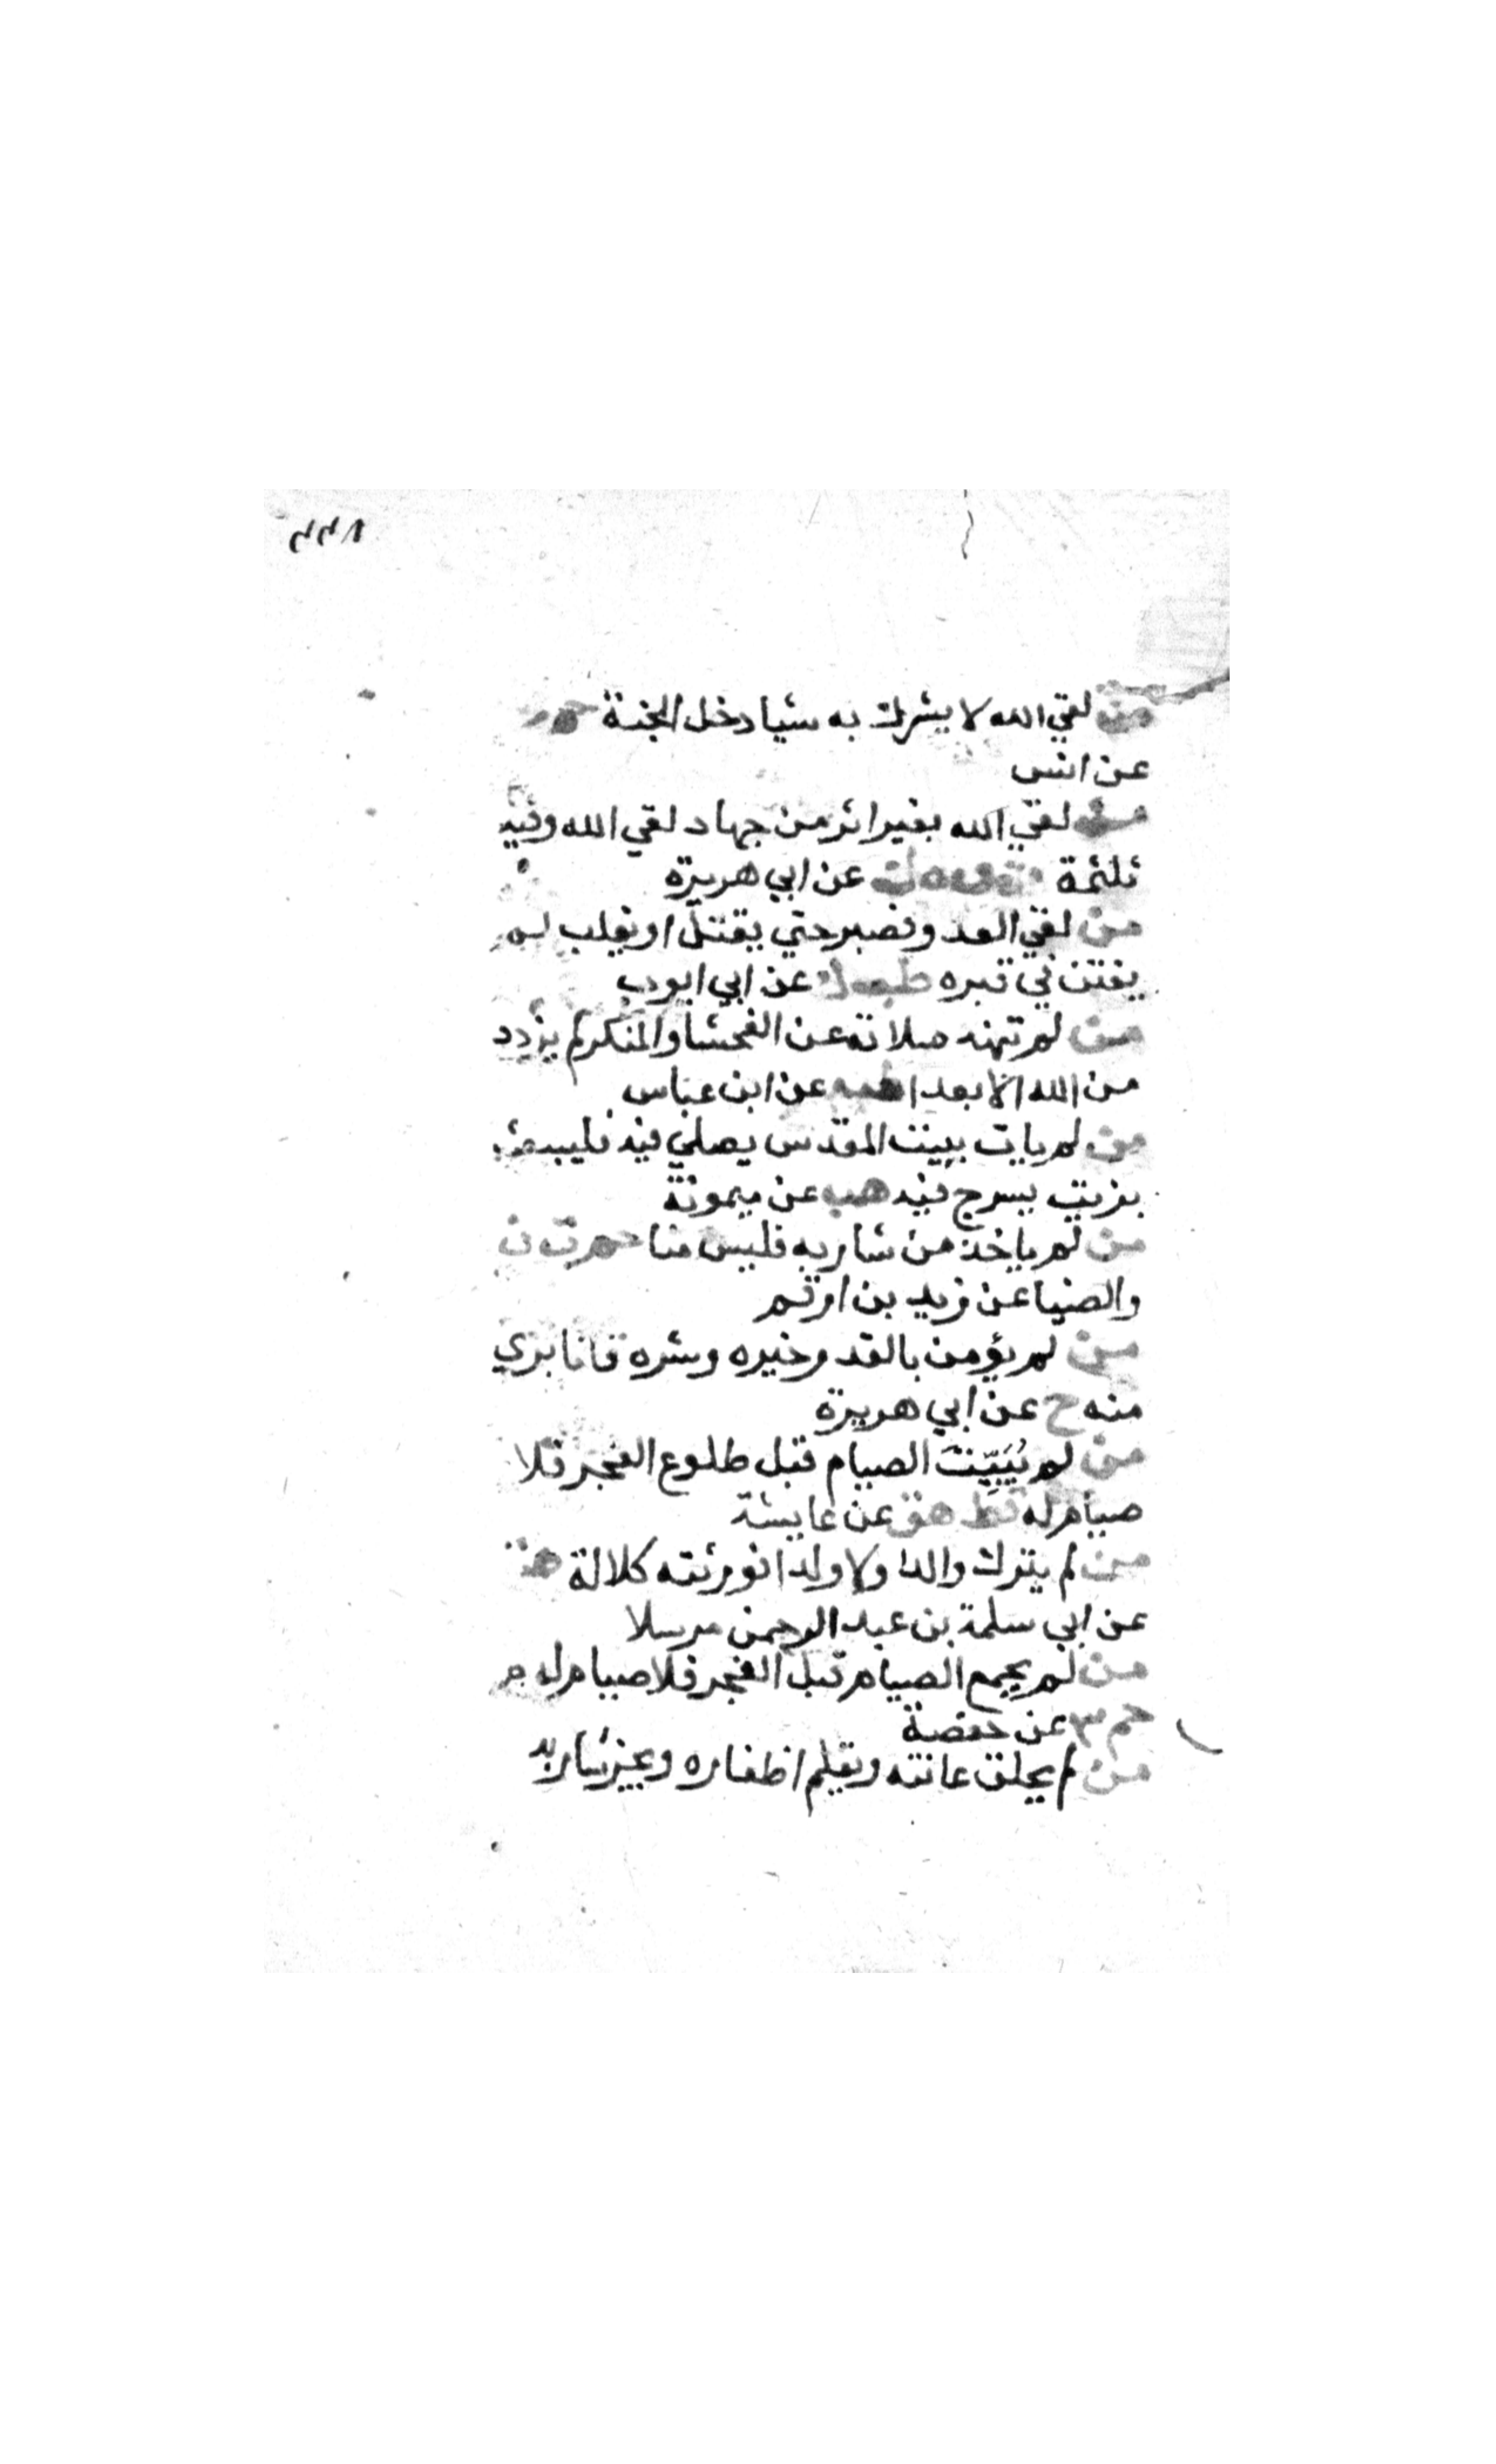 من لقي الله لا يشرك به شيا دخل الجنة حم
عن انس
من لقي الله بغير اثر من جهاد لقي الله وفيه
ثلثمة عن ابي هريرة
من لقي العدو فصبر حتي يقتل او يغلب لم
يفتن في قبره طب ك عن ابي ايوب
من لم تنهه صلاته عن الفحشا والمنكر لم يزدد
من الله الا بعدا طب عن ابن عباس
من لم يات بيت المقدس يصلي فيه فليبعث
بزيت يسرج فيه هب عن ميمونة
من لم ياخذ من شاربه فليس منا حم ت ن
والضيا عن زيد بن ارقم
من لم يؤمن بالقدر خيره وشره فانا بري
منه ع عن ابي هريرة
من لم يُبَيِّتَ الصيام قبل طلوع الفجر فلا
صيام له قط هق عن عايشة
من لم يترك والدا ولا ولدا فورثته كلالة هق
عن ابي سلمة بن عبد الرحمن مرسلا
من لم يجمع الصيام قبل الفجر فلا صيام له
حم ٣ عن حفصة
من لم يحلق عانته ويقلم اظفاره ويجز شاربه